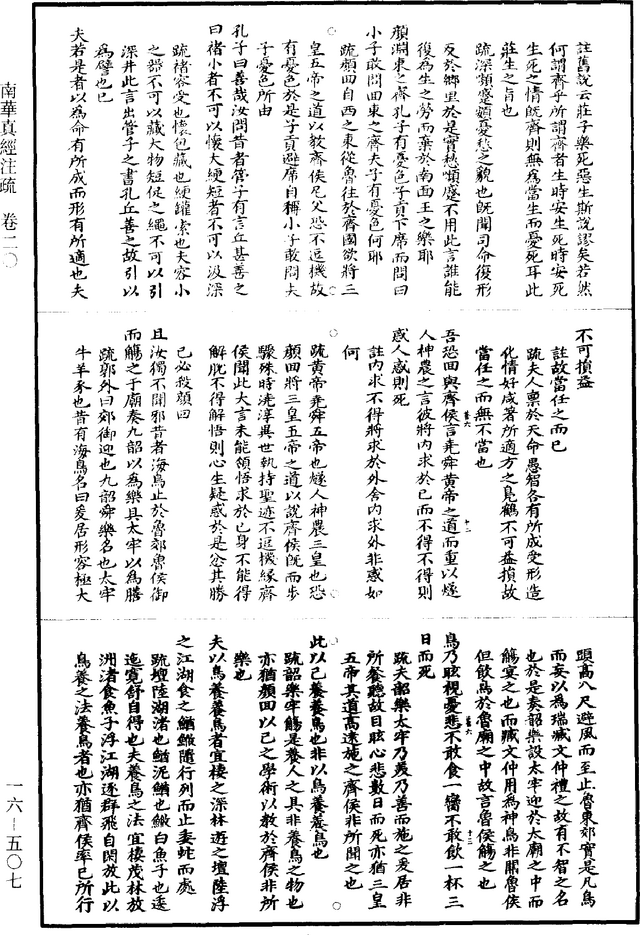 註舊說云莊子樂死惡生斯說謬矣若然
何謂齊乎所謂齊者生時安生死時安死
生死之情既齊則無為當生而憂死耳此
莊生之旨也
疏深顰蹙頞憂愁之貌也既聞司命復形
反於鄉里於是實愁矉蹙不用此言誰能
復為生之勞而棄於南面王之樂耶
顏淵東之齊孔子有憂色子貢下席而問曰
小子敢問回東之齊夫子有憂色何耶
疏顏回自西之東從魯往於齊國欲將三
皇五帝之道以教齊侯尼父恐不逗機故
有憂色於是子貢避席自稱小子敢問夫
子憂色所由
孔子曰善哉汝問昔者管子有言丘甚善之
曰褚小者不可以懷大綆短者不可以汲深
疏褚容受也懷包藏也綆罐索也夫容小
之器不可以藏大物短促之繩不可以引
深井此言出管子之書孔丘善之故引以
為譬也已
夫若是者以為命有所成而形有所適也夫
不可損益
註故當任之而已
疏夫人稟於天命愚智各有所成受形造
化情好咸著所適方之鳧鶴不可益損故
當任之而無不當也
吾恐回與齊侯言堯舜黃帝之道而重以燧
人神農之言彼將內求於己而不得不得則
惑人惑則死
註內求不得將求於外舍內求外非惑如
何
疏黃帝堯舜五帝也燧人神農三皇也恐
顏回將三皇五帝之道以說齊侯既而步
驟殊時澆淳異世執持聖迹不逗機緣齊
侯聞此大言未能領悟求於己身不能得
解脫不得解悟則心生疑惑於是忿其勝
己必殺顏回
且汝獨不聞邪昔者海鳥止於魯郊魯侯御
而觴之于廟奏九韶以為樂具太牢以為膳
疏郭外曰郊御迎也九韶舜樂名也太牢
牛羊豕也昔有海鳥名曰爰居形容極大
頭高八尺避風而至止魯東郊實是凡鳥
而妄以為瑞臧文仲禮之故有不智之名
也於是奏韶樂設太牢迎於太廟之中而
觴宴之也而臧文仲用為神鳥非關魯侯
但飲鳥於魯廟之中故言魯侯觴之也
鳥乃眩視憂悲不敢食一臠不敢飲一杯三
日而死
疏夫韶樂太牢乃美乃善而施之爰居非
所餐聽故目眩心悲數日而死亦猶三皇
五帝其道高遠施之齊侯非所聞之也
此以己養養鳥也非以鳥養養鳥也
疏韶樂牢觴是養人之具非養鳥之物也
亦猶顏回以己之學術以教於齊侯非所
樂也
夫以鳥養養鳥者宜棲之深林遊之壇陸浮
之江湖食之鰌鰷隨行列而止委蛇而處
疏壇陸湖渚也鰌泥鰌也鰷白魚子也逶
迤寬舒自得也夫養鳥之法宜棲茂林放
洲渚食魚子浮江湖逐群飛自閑放此以
鳥養之法養鳥者也亦猶齊侯率己所行
南華真經注疏 卷二〇
一六－五〇七